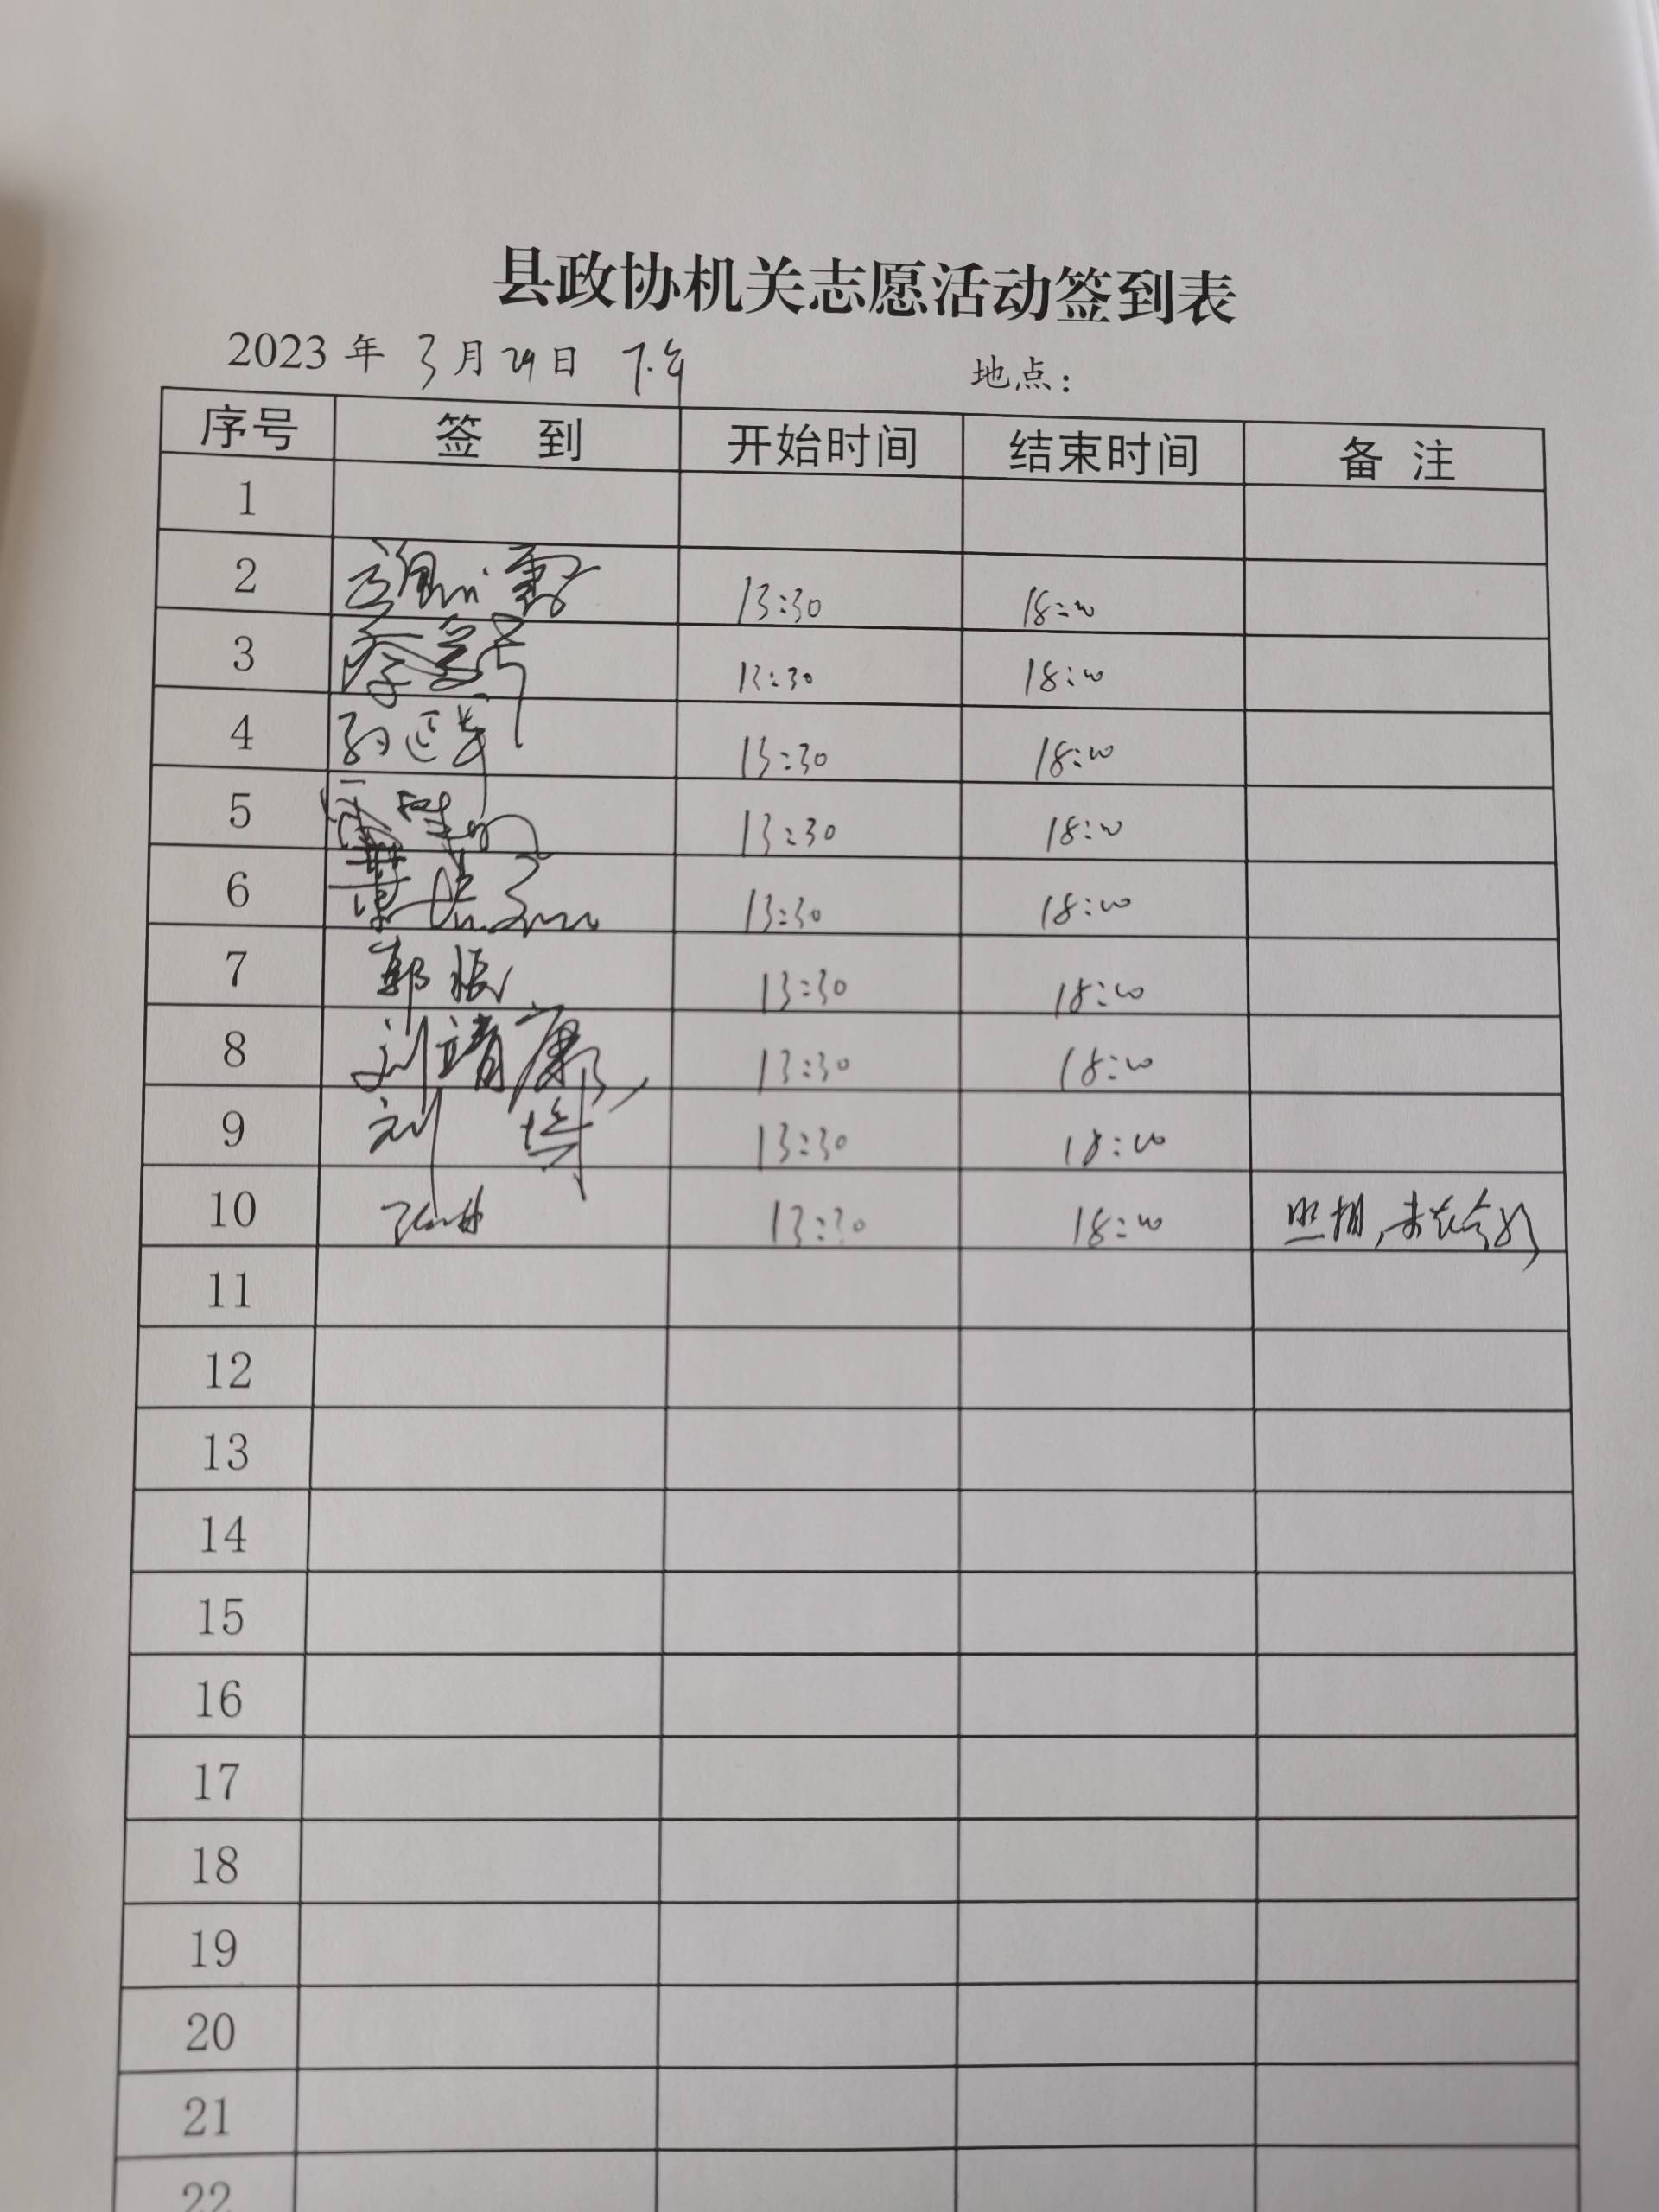 县政协机关志愿活动签到表
2023 年 3 月 29 日 下午 地点：
序号 签 到 开始时间 结束时间 备 注
1
2 13:30 18:00
3 13:30 18:00
4 13:30 18:00
5 13:30 18:00
6 13:30 18:00
7 郭振 13:30 18:00
8 刘靖康 13:30 18:00
9 刘 13:30 18:00
10 13:30 18:00 照相,未在合影
11
12
13
14
15
16
17
18
19
20
21
22